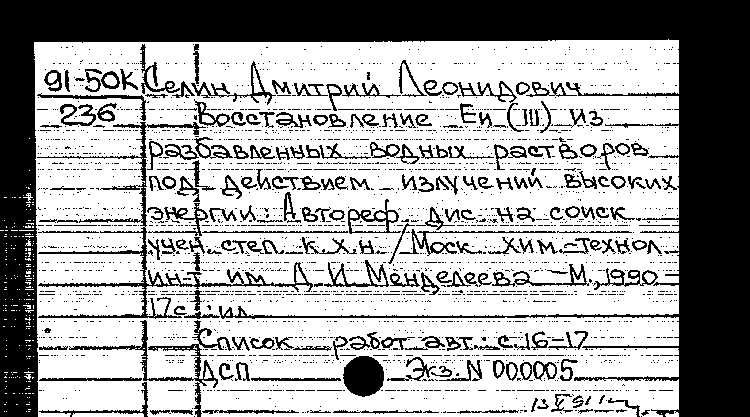 91-50К Селин, Дмитрий Леонидович
236 Восстановление Eu (III) из
разбавленных водных растворов
под действием излучений высоких
энергий: Автореф. дис. на соиск.
учен. степ. к.х.н. / Моск. хим.-технол.
ин-т им. Д.И. Менделеева. – М., 1990. –
17с.: ил.
Список работ авт.: с.16-17
ДСП Экз. N 000005